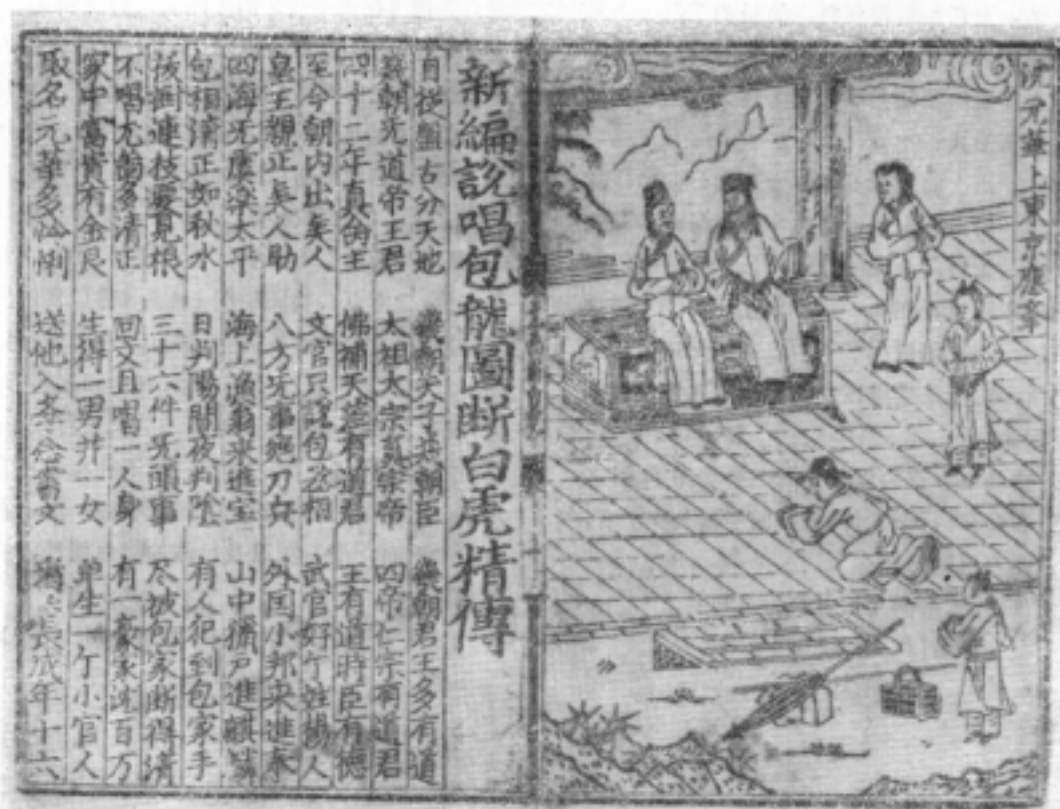 沈元華上東京應舉
新編說唱包龍圖斷白虎精傳
自從盤古分天地 幾朝天子幾朝臣 幾朝君王多有道
幾朝无道帝王君 太祖太宗真宗帝 四帝仁宗有道君
四十二年真命主 佛補天差有道君 王有道時臣有德
至今朝內出矣人 文官只說包丞相 武官好个姓楊人
皇王親正矣人助 八方无事絶刀兵 外囯小邦來進奉
四海无虞樂太平 海上漁翁來進宝 山中獵户進麒麟
包相清正如秋水 日判陽間夜判陰 有人犯到包家手
拔樹連枝要見根 三十六件无頭事 尽被包家断得清
不唱尤箇多清正 回文且唱一人身 有一豪家沈百万
家中富貴有金艮 生得一男并一女 单生一个小官人
取名元華多伶俐 送他入孝念書文 長成年十六